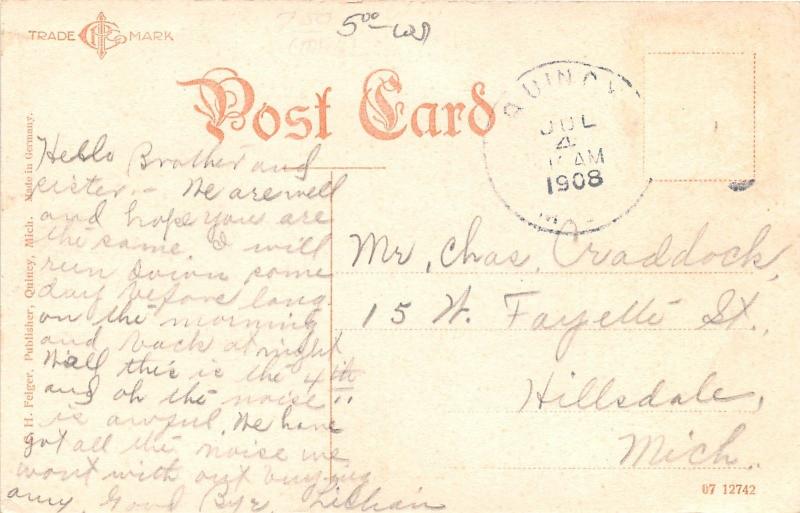 TRADE MARK
5⁰⁰
Post Card
QUINCY
JUL
4
AM
1908
M
H. Feiger, Publisher, Quincy, Mich. Made in Germany.
Hello Brother and
sister. - We are well
and hope you are
the same. I will
run down some
day before long
on the morning
and back at night
Well this is the 4th
and oh the noise!!
is awful. We have
got all the noise we
want with out buying
any. Good Bye, Lillian
Mr. Chas. Craddock,
15 W. Fayette St.,
Hillsdale,
Mich.
07 12742